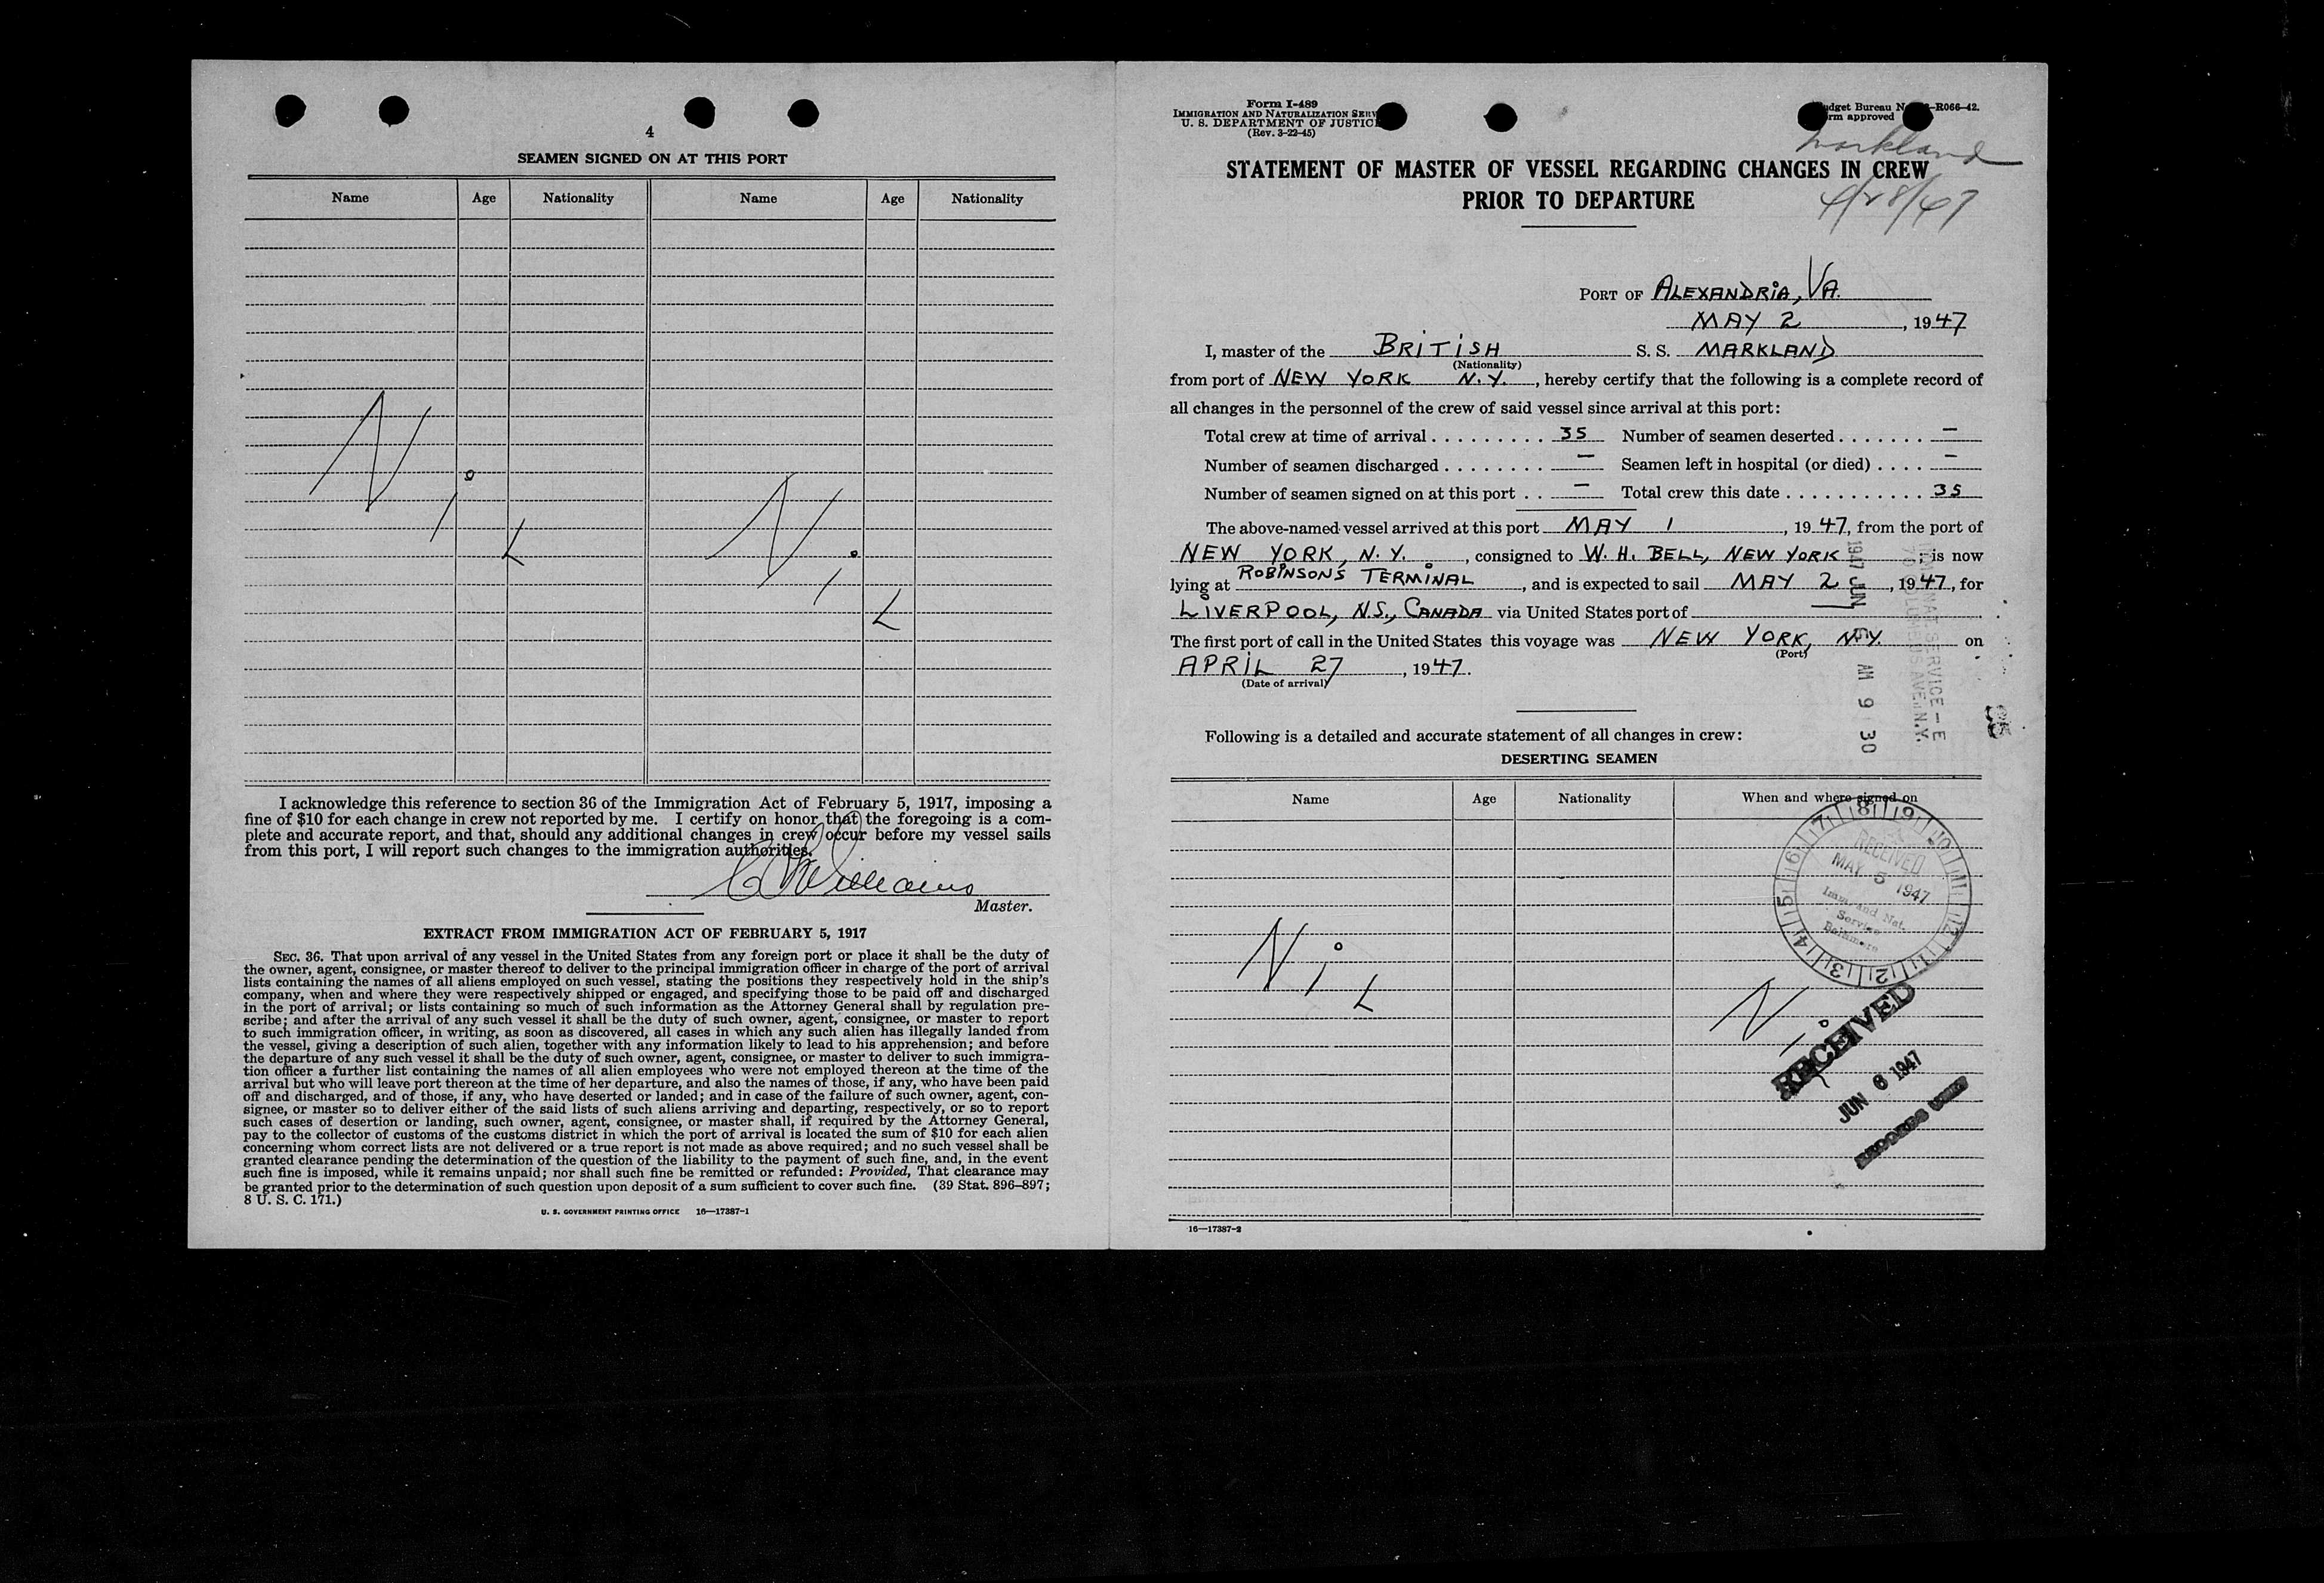 4
SEAMEN SIGNED ON AT THIS PORT
Name Age Nationality Name Age Nationality
NiL NiL
I acknowledge this reference to section 36 of the Immigration Act of February 5, 1917, imposing a
fine of $10 for each change in crew not reported by me. I certify on honor that the foregoing is a com-
plete and accurate report, and that, should any additional changes in crew occur before my vessel sails
from this port, I will report such changes to the immigration authorities.
Williams
Master.
EXTRACT FROM IMMIGRATION ACT OF FEBRUARY 5, 1917
SEC. 36. That upon arrival of any vessel in the United States from any foreign port or place it shall be the duty of
the owner, agent, consignee, or master thereof to deliver to the principal immigration officer in charge of the port of arrival
lists containing the names of all aliens employed on such vessel, stating the positions they respectively hold in the ship's
company, when and where they were respectively shipped or engaged, and specifying those to be paid off and discharged
in the port of arrival; or lists containing so much of such information as the Attorney General shall by regulation pre-
scribe; and after the arrival of any such vessel it shall be the duty of such owner, agent, consignee, or master to report
to such immigration officer, in writing, as soon as discovered, all cases in which any such alien has illegally landed from
the vessel, giving a description of such alien, together with any information likely to lead to his apprehension; and before
the departure of any such vessel it shall be the duty of such owner, agent, consignee, or master to deliver to such immigra-
tion officer a further list containing the names of all alien employees who were not employed thereon at the time of the
arrival but who will leave port thereon at the time of her departure, and also the names of those, if any, who have been paid
off and discharged, and of those, if any, who have deserted or landed; and in case of the failure of such owner, agent, con-
signee, or master so to deliver either of the said lists of such aliens arriving and departing, respectively, or so to report
such cases of desertion or landing, such owner, agent, consignee, or master shall, if required by the Attorney General,
pay to the collector of customs of the customs district in which the port of arrival is located the sum of $10 for each alien
concerning whom correct lists are not delivered or a true report is not made as above required; and no such vessel shall be
granted clearance pending the determination of the question of the liability to the payment of such fine, and, in the event
such fine is imposed, while it remains unpaid; nor shall such fine be remitted or refunded: Provided, That clearance may
be granted prior to the determination of such question upon deposit of a sum sufficient to cover such fine. (39 Stat. 896–897;
8 U. S. C. 171.)
U. S. GOVERNMENT PRINTING OFFICE 16—17387-1
Form I-489
IMMIGRATION AND NATURALIZATION SERV
U. S. DEPARTMENT OF JUSTIC
(Rev. 3-22-45)
dget Bureau N -R066-42.
rm approved
Markland
4/28/47
STATEMENT OF MASTER OF VESSEL REGARDING CHANGES IN CREW
PRIOR TO DEPARTURE
PORT OF ALEXANDRIA, VA.
MAY 2, 1947
I, master of the BRITISH S. S. MARKLAND
(Nationality)
from port of NEW YORK N.Y., hereby certify that the following is a complete record of
all changes in the personnel of the crew of said vessel since arrival at this port:
Total crew at time of arrival . . . . . . . . . 35 Number of seamen deserted . . . . . . . —
Number of seamen discharged . . . . . . . . — Seamen left in hospital (or died) . . . . —
Number of seamen signed on at this port . . — Total crew this date . . . . . . . . . . . 35
The above-named vessel arrived at this port MAY 1, 1947, from the port of
NEW YORK, N.Y., consigned to W. H. BELL, NEW YORK; is now
lying at ROBINSONS TERMINAL, and is expected to sail MAY 2, 1947, for
LIVERPOOL, N.S., CANADA via United States port of
The first port of call in the United States this voyage was NEW YORK, N.Y. on
(Port)
APRIL 27, 1947.
(Date of arrival)
1947 JUN 6 AM 9 30
SERVICE – E
AVE., N.Y.
Following is a detailed and accurate statement of all changes in crew:
DESERTING SEAMEN
Name Age Nationality When and where signed on
RECEIVED
MAY 5 1947
Imm. and Nat.
Service
Baltimore
NiL NiL
RECEIVED
JUN 6 1947
RECORDS UNIT
16—17387-2